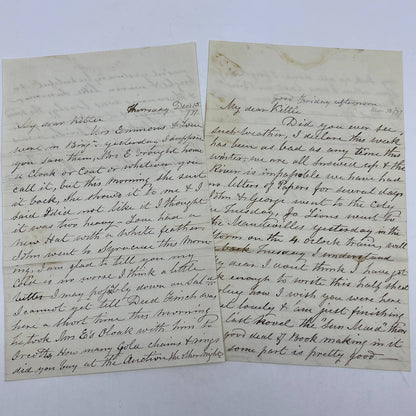 Thursday Dec 15
My dear Kittie
Mrs Emmons & Lou
were in Bing- yesterday I suppose
you saw them, Mrs. E brought home
a Cloak or Coat or whatever you
call it, but this Morning she sent
it back, She showed it to me & I
said I did not like it I thought
it was two heavy- Lou had a
new Hat with a White feather.
John went to Syracuse this Morn
ing, I am glad to tell you my
Cold is no worse I think a little
better I may possibly down on Sat-
I cannot yet tell Dud French was
here a short time this Morning
he took Mrs E's Cloak with him to
How many Gold chains & rings
did you buy at the Auction the other night
good Friday afternoon
My dear Kittie
Did you ever see
such weather, I declare this week
has been as bad as any time this
winter, we are all Snowed up & the
River is impassable we have have
no letters or Papers for several days
John & George went to the City
on Tuesday, Jo Lions went to
the Mandevilles yesterday in the
storm on the 4 oclock train, will
back Tuesday I understand
my dear I dont think I have got
enough to write this half shed
how I wish you were here
lonely & I am just finishing
last Novel the "Sun Maid" there
good deal of Book making in it
some part is pretty good